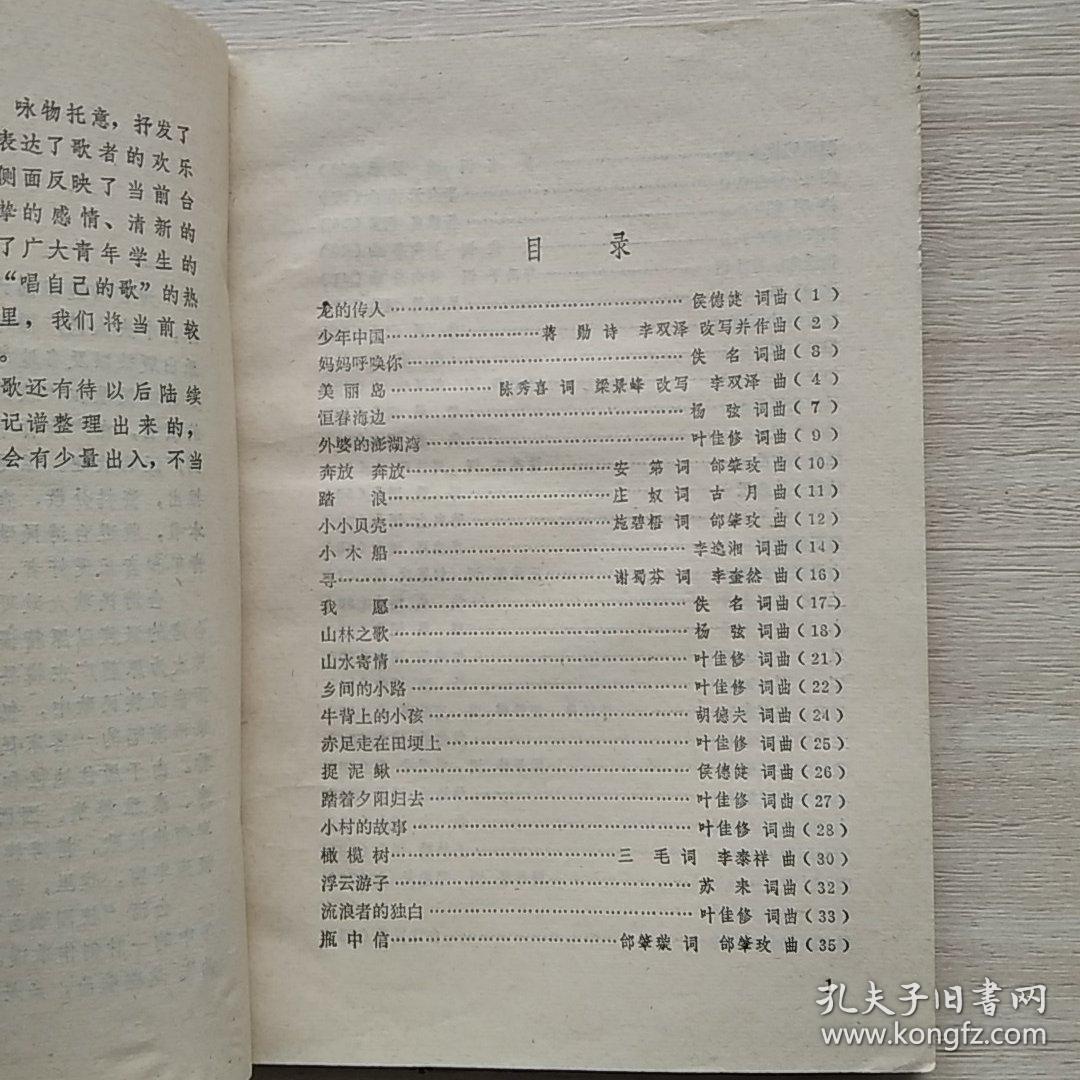 咏物托意，抒发了
表达了歌者的欢乐
侧面反映了当前台
挚的感情、清新的
了广大青年学生的
“唱自己的歌”的热
里，我们将当前较
。
歌还有待以后陆续
记谱整理出来的，
会有少量出入，不当
目 录
龙的传人……侯德健 词曲（1）
少年中国……蒋 勋诗 李双泽 改写并作曲（2）
妈妈呼唤你……佚 名 词曲（3）
美丽岛……陈秀喜 词 梁景峰 改写 李双泽 曲（4）
恒春海边……杨 弦 词曲（7）
外婆的澎湖湾……叶佳修 词曲（9）
奔放 奔放……安 第 词 邰肇玫 曲（10）
踏 浪……庄 奴 词 古 月 曲（11）
小小贝壳……施碧梧 词 邰肇玫 曲（12）
小木船……李逸湘 词曲（14）
寻……谢蜀芬 词 李奎然 曲（16）
我 愿……佚 名 词曲（17）
山林之歌……杨 弦 词曲（18）
山水寄情……叶佳修 词曲（21）
乡间的小路……叶佳修 词曲（22）
牛背上的小孩……胡德夫 词曲（24）
赤足走在田埂上……叶佳修 词曲（25）
捉泥鳅……侯德健 词曲（26）
踏着夕阳归去……叶佳修 词曲（27）
小村的故事……叶佳修 词曲（28）
橄榄树……三 毛 词 李泰祥 曲（30）
浮云游子……苏 来 词曲（32）
流浪者的独白……叶佳修 词曲（33）
瓶中信……邰肇漩 词 邰肇玫 曲（35）
1
孔夫子旧书网
www.kongfz.com